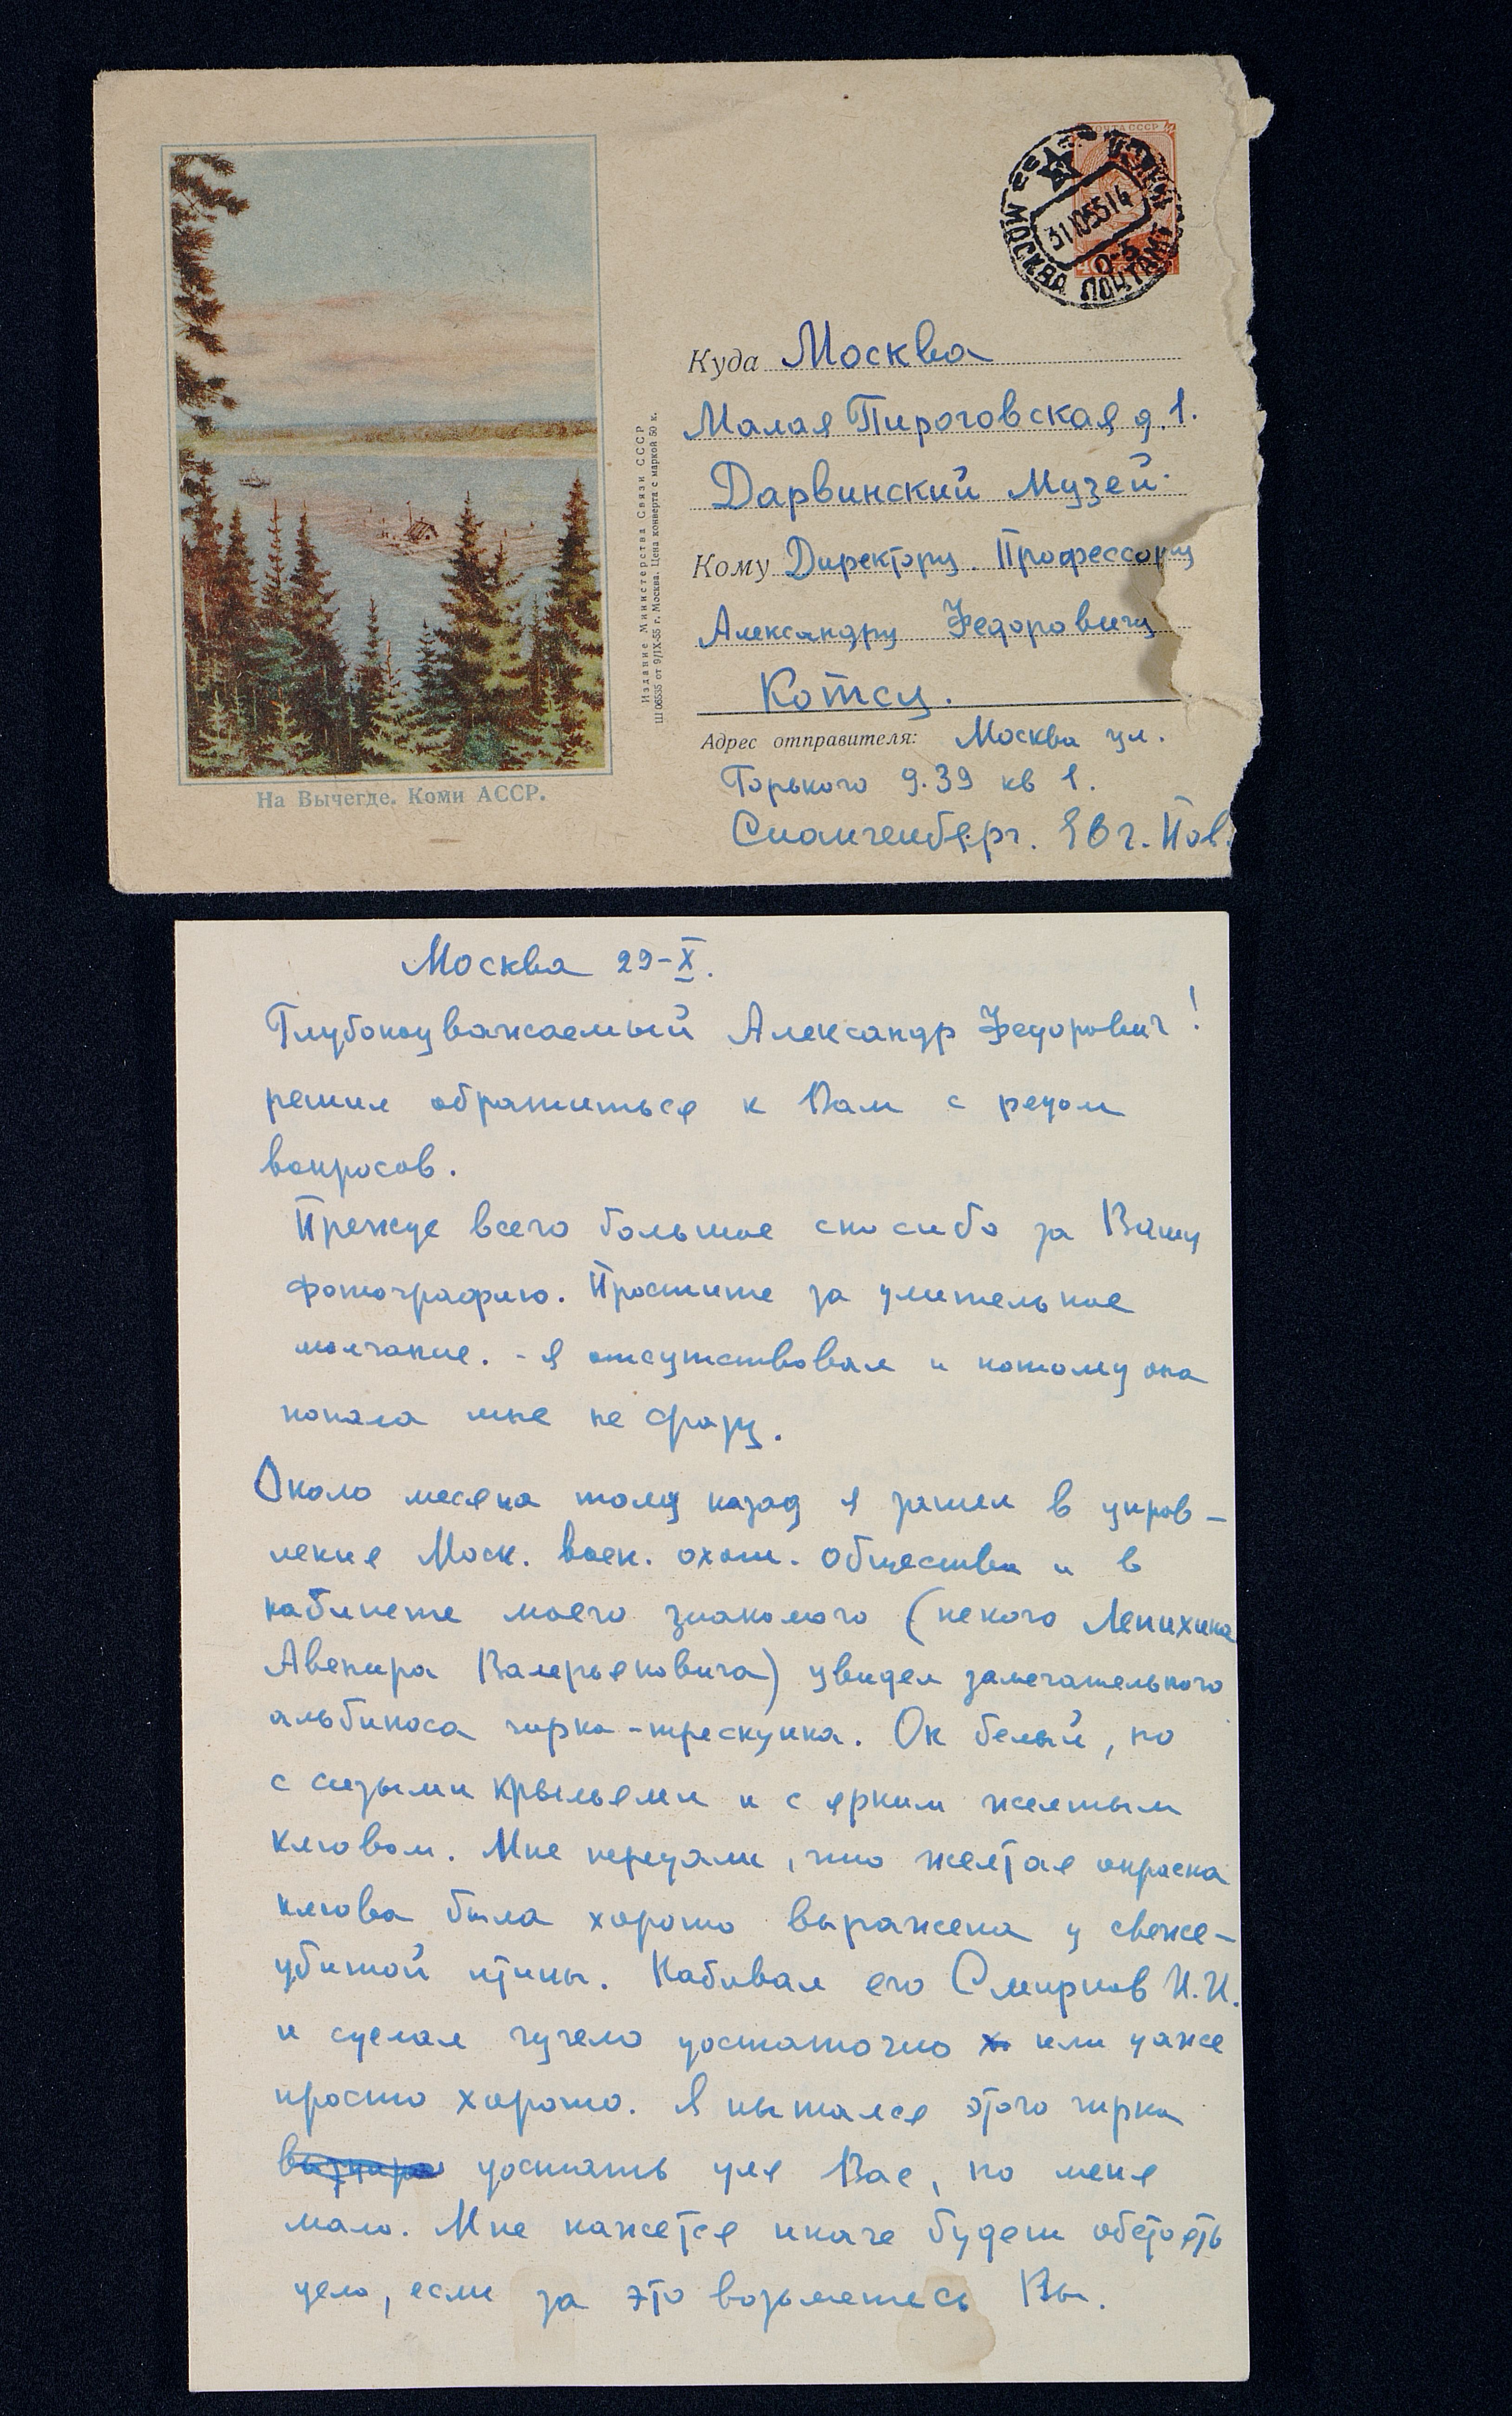 ПОЧТА СССР
МОСКВА ПОЧТАМТ
31.10.55 14
Куда Москва
Малая Пироговская д. 1.
Дарвинский Музей.
Кому Директору. Профессору
Александру Федоровичу
Котсу.
Адрес отправителя: Москва ул.
Горького д. 39 кв 1.
Спангенберг. Евг. Пав.
Издание Министерства Связи СССР
Ш 06535 от 9/IX-55 г. Москва. Цена конверта с маркой 50 к.
На Вычегде. Коми АССР.
Москва 29-X.
Глубокоуважаемый Александр Федорович!
решил обратиться к Вам с рядом
вопросов.
Прежде всего большое спасибо за Вашу
фотографию. Простите за длительное
молчание. - Я отсутствовал и потому она
попала мне не сразу.
Около месяца тому назад я зашел в управ-
ление Моск. воен. охот. общества и в
кабинете моего знакомого (некого Лепихина
Авенира Валерьяновича) увидел замечательного
альбиноса чирка-трескунка. Он белый, но
с сизыми крыльями и с ярким желтым
клювом. Мне передали, что желтая окраска
клюва была хорошо выражена у свеже-
убитой птицы. Набивал его Смирнов И.И.
и сделал чучело достаточно или даже
просто хорошо. Я пытался этого чирка
достать для Вас, но меня
мало. Мне кажется иначе будет обстоять
дело, если за это возьметесь Вы.